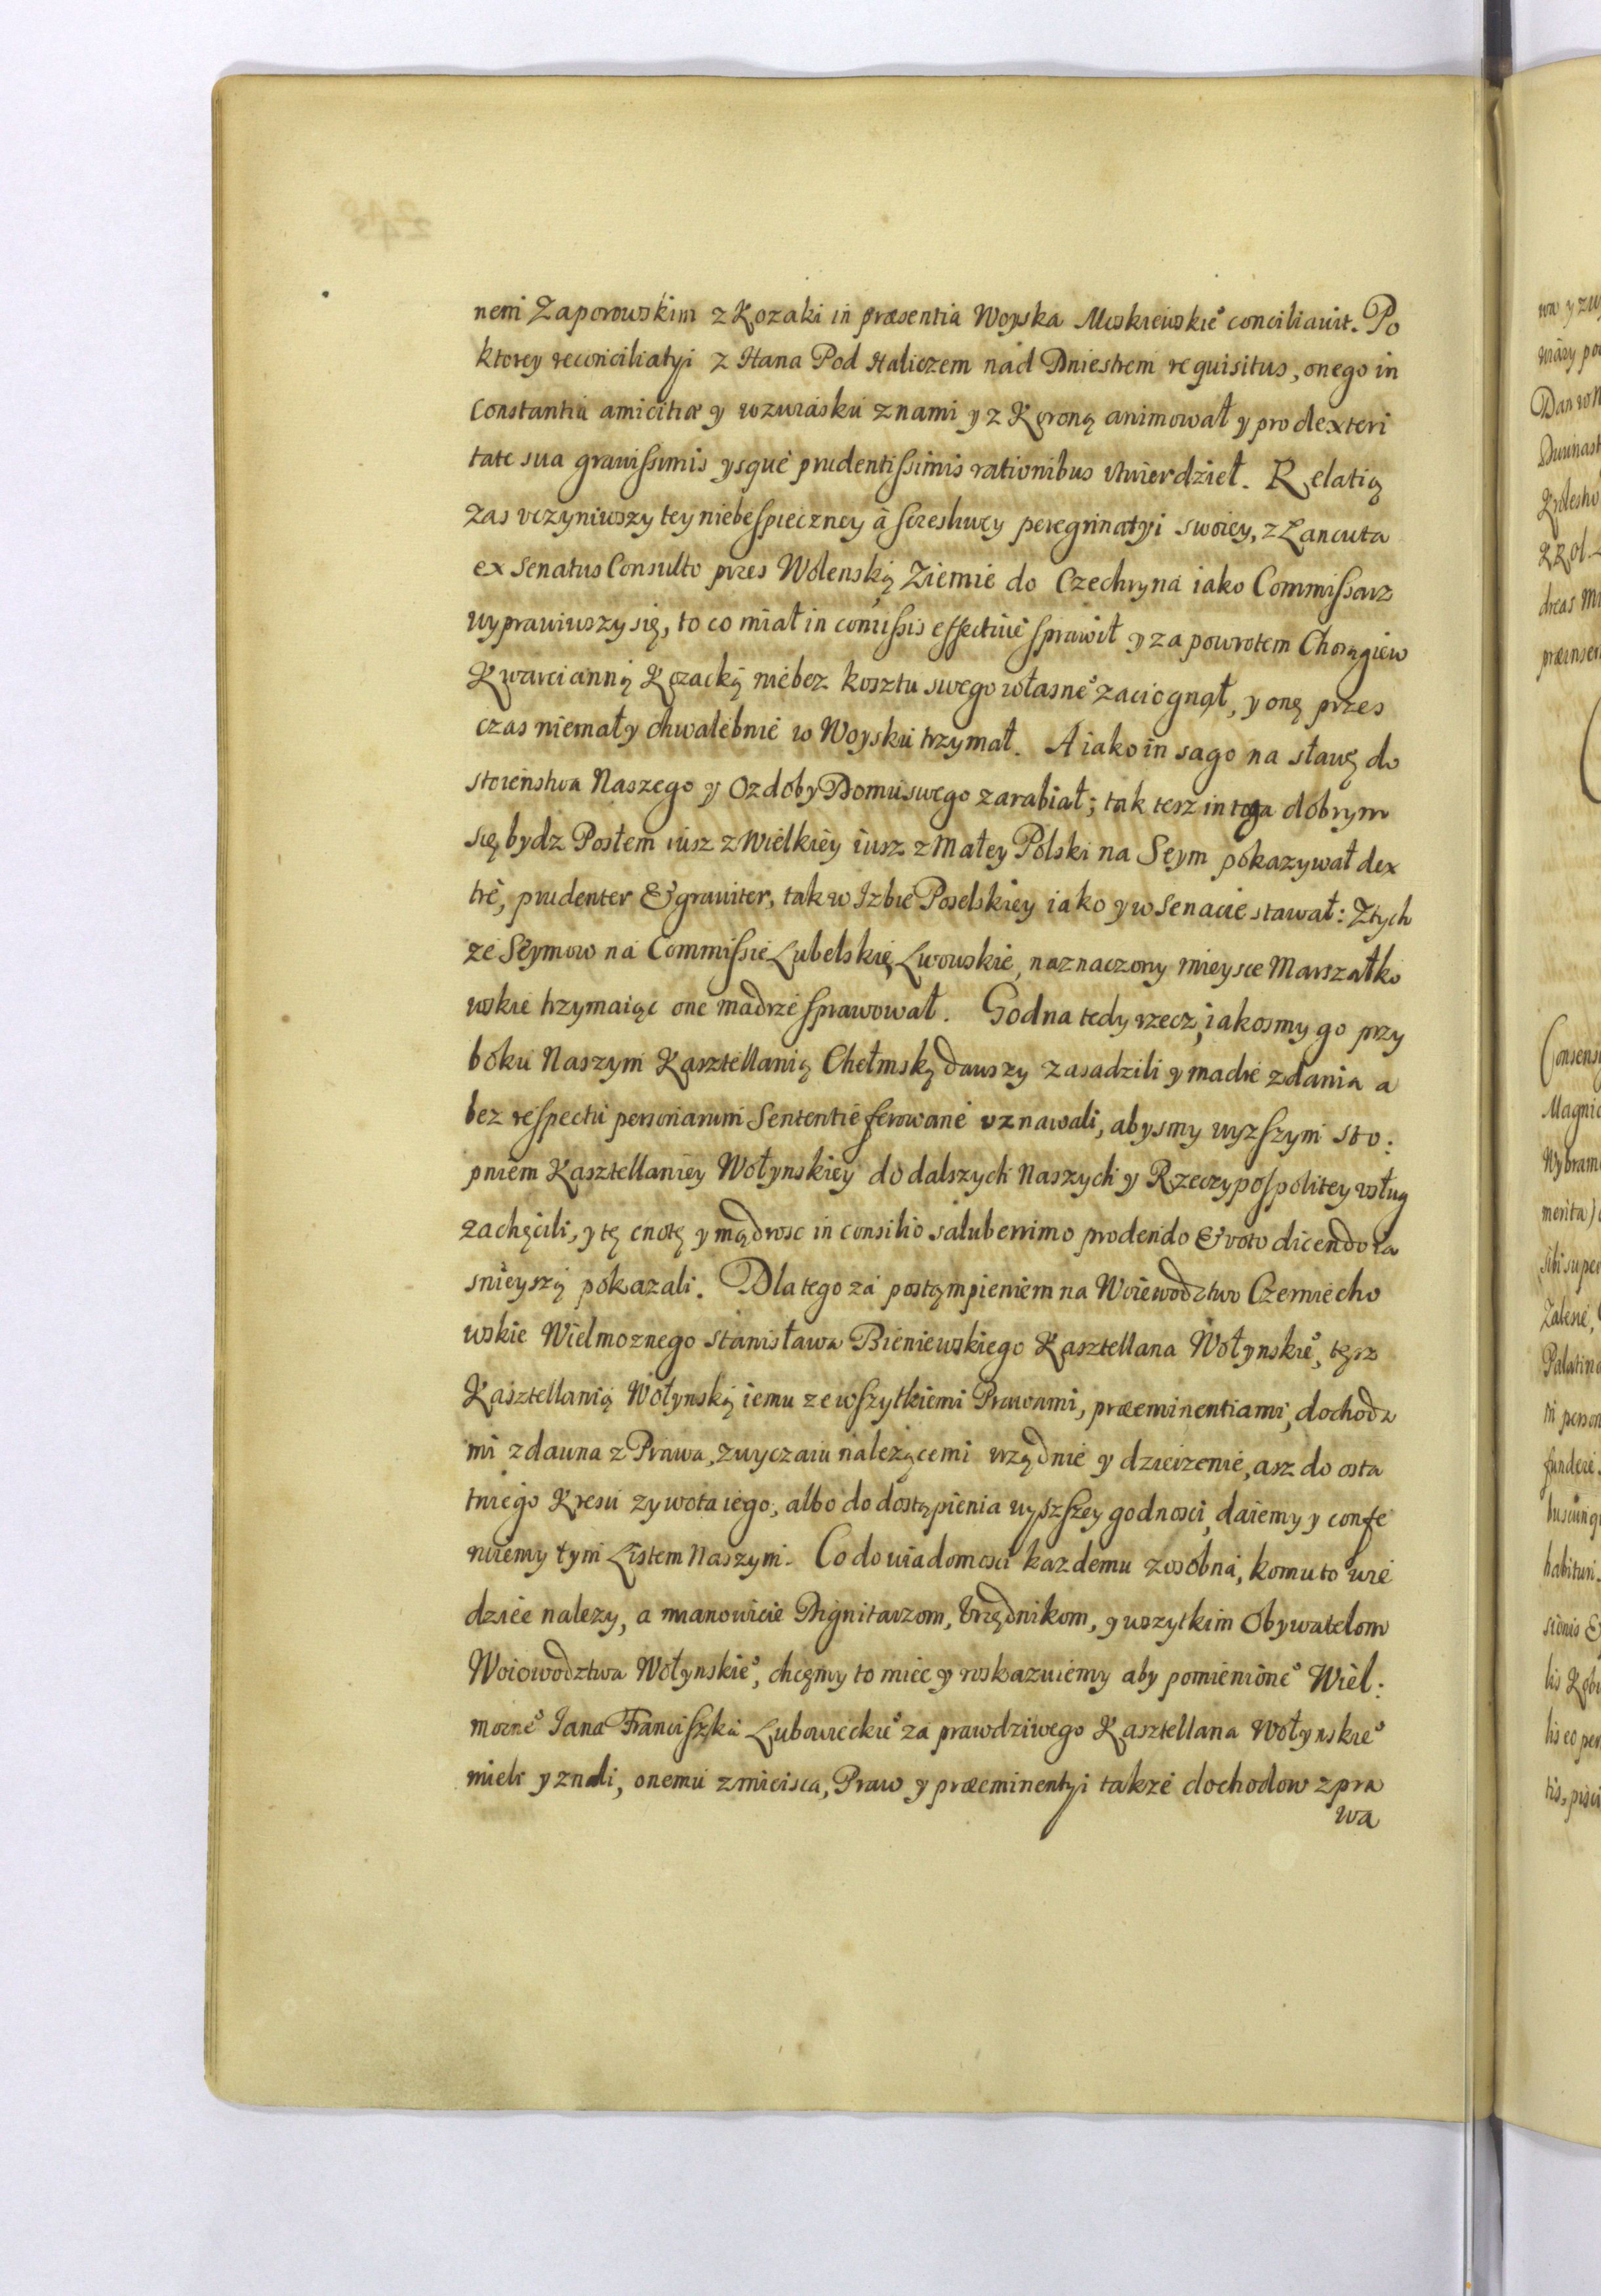 nem Zaporowskim z Kozaki in præsentia Woyska Moskiewskie° conciliauit. Po
ktorey reconciliatyi z Hana Pod Haliczem nad Dniestrem requisitus, onego in
Constantiu amicitiæ y wzwiasku znami y z Koroną animował y pro dexteri
tate sua grauissimis ysque prudentissimis rationibus vtwierdzieł. Relatią
zas vczyniwszy tey niebespieczney à sczesliwey peregrinatyi swoiey, z Lancuta
ex Senatus Consulto przes Wolenską Ziemie do Czechryna iako Commissarz
wyprawiwszy się, to co miał in comissis effectiue sprawił y za powrotem Chorągiew
Kwarcianną Kozacką niebez kosztu swego własne° zaciognął, y onę przes
czas niemały chwalebnie w Woysku trzymał. A iako in sago na sławę do
stoienstwa Naszego y Ozdoby Domu swego zarabiał; tak tesz in toga dobrym
się bydz Posłem iusz z Wielkiey iusz z Małey Polski na Seym pokazywał dex
tre, prudenter & grauiter, tak w Izbie Poselskiey iako y w Senacie stawał: Ztych
ze Seymow na Commissie Lubelskię, Lwowskie, naznaczony mieysce Marszałko
wskie trzymaiąc one madrze sprawował. Godna tedy rzecz, iakosmy go przy
boku Naszym Kasztellanią Chełmską dawszy zasadzili y madre zdania a
bez respectu personarum Sententie ferowane vznawali, abysmy wyzszym sto:
pniem Kasztellaniey Wołynskiey do dalszych Naszych y Rzeczypospolitey vsług
zachęcili, y tę cnotę y mądrosc in consilio saluberrimo prodendo & voto dicendo ia
snieyszą pokazali. Dla tego za postąmpieniem na Woiewodztwo Czerniecho
wskie Wielmoznego Stanisława Bieniewskiego Kasztellana Wołynskie°, tęsz
Kasztellanią Wołynską iemu zewszytkiemi Prawami, præeminentiami, dochoda
mi zdauna z Prawa, zwyczaiu należącemi vrzędnie y dzieirzenie, asz do osta
tniego Kresu zywota iego, albo do dostąpienia wyszszey godnosci, daiemy y confe
ruiemy tym Listem Naszym. Co do wiadomosci kazdemu zosobna, komu to wie
dziec nalezy, a mianowicie Dignitarzom, Vrzędnikom, y wszytkim Obywatelom
Woiowodztwa Wołynskie°, chcęmy to miec y roskazuiemy aby pomienione° Wiel:
mozne° Jana Franciszka Lubowieckie° za prawdziwego Kasztellana Wołynskie°
mieli y znali, onemu z mieisca, Praw y præeminentyi takze dochodow z pra
wa